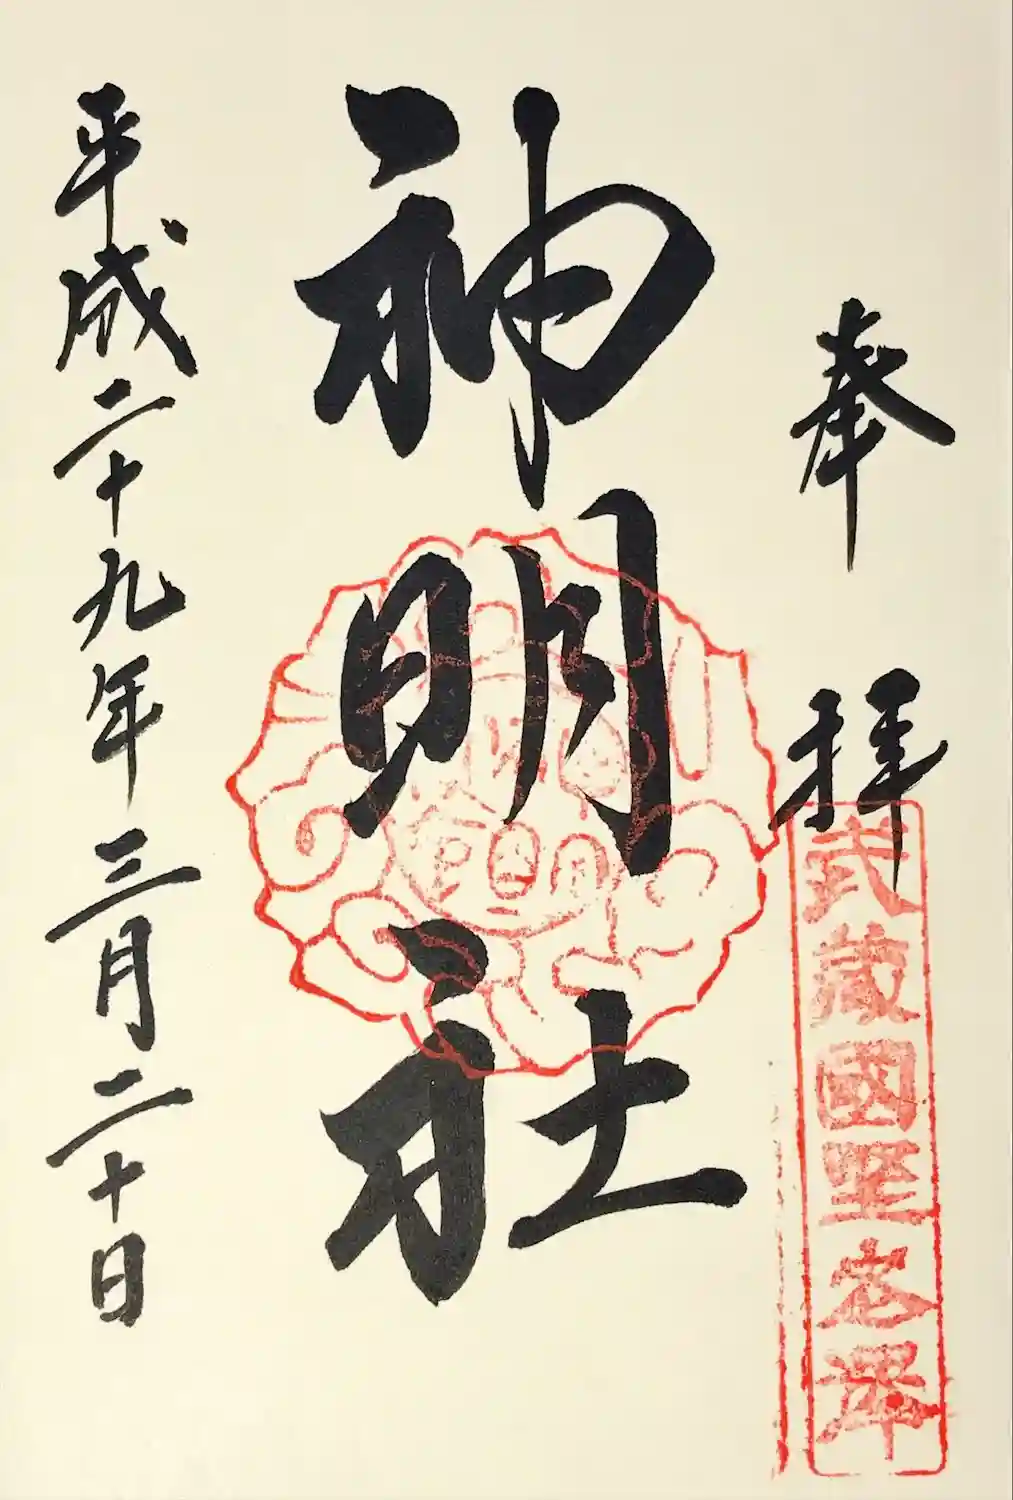 奉拝
武蔵國聖名澤
神明社
平成二十九年三月二十日